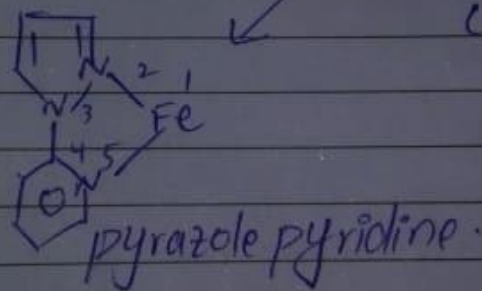 N 2 1
N 3 Fe
4 5
N
pyrazole pyridine.